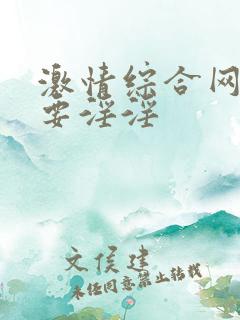 激情综合网
要淫淫
文侯建
未经同意禁止转载